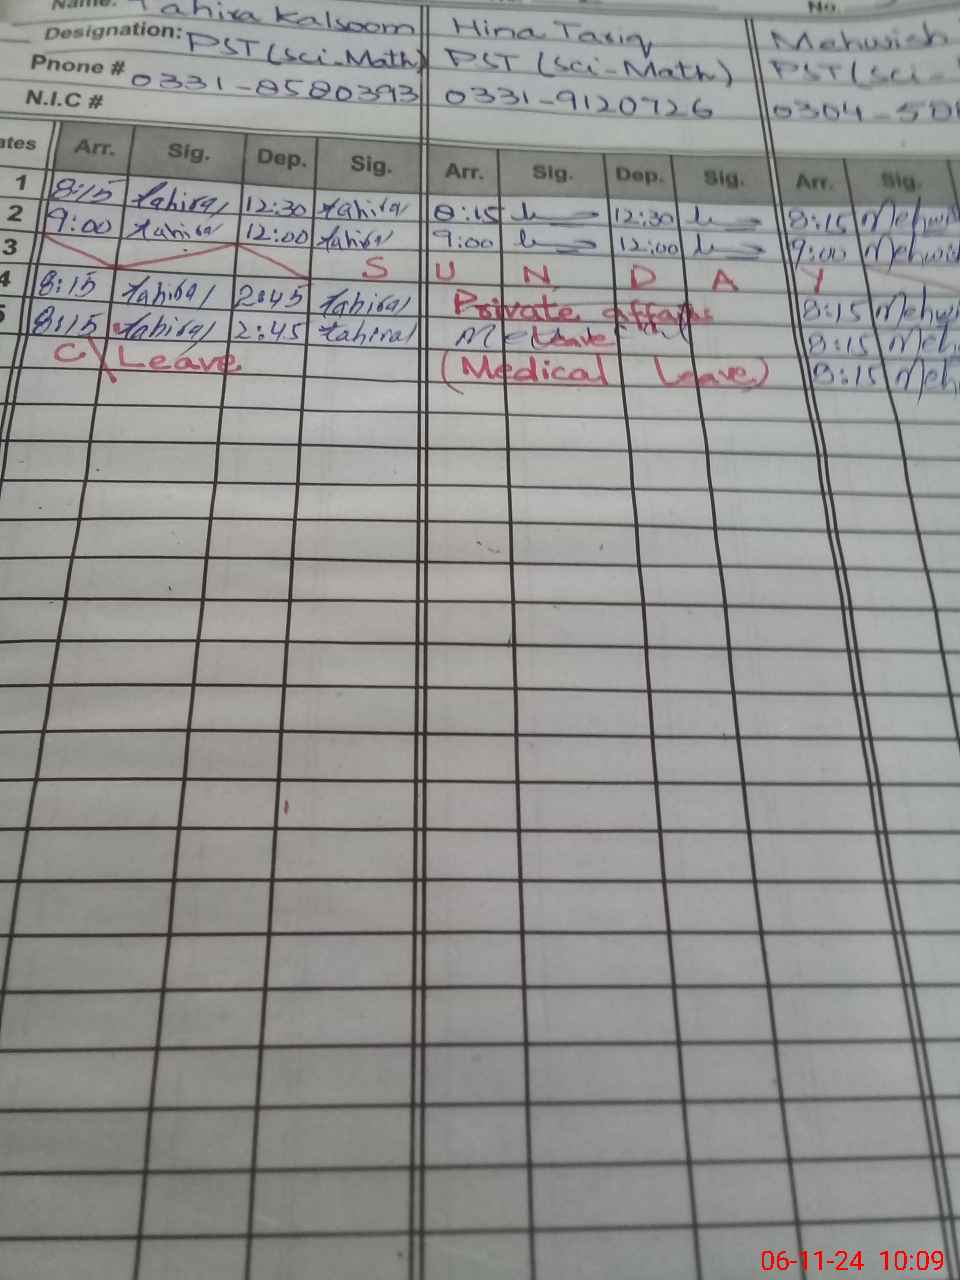 Name: Tahira Kalsoom Hina Tariq Mehwish No.
Designation: PST (Sci-Math) PST (Sci-Math) PST (Sci-
Phone # 0331-8580393 0331-9120726 0304-50
N.I.C #
ates Arr. Sig. Dep. Sig. Arr. Sig. Dep. Sig. Arr. Sig.
1 8:15 tahira 12:30 tahira 8:15 12:30 8:15 Mehwi
2 9:00 tahira 12:00 tahira 9:00 12:00 9:00 Mehwish
3 S U N D A Y
4 8:15 tahira 2:45 tahira Private affairs 8:15 Mehwi
5 8:15 tahira 2:45 tahira leave 8:15 Meh
C\Leave (Medical leave) 8:15 Meh
06-11-24 10:09